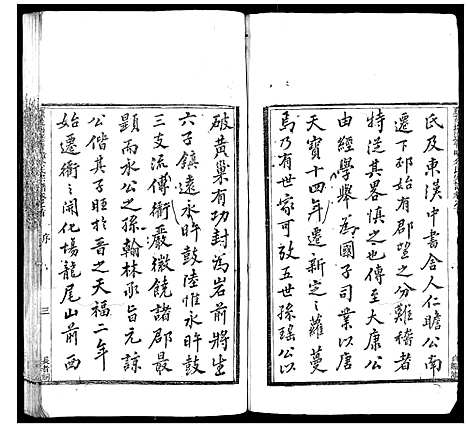 氏及東漢中書舍人仁瞻公南
遷下邳始有郡望之分難稽者
特從其畧慎之也傳至大康公
由經學舉為國子司業以唐
天寶十四年遷新定之蘿蔓
焉乃有世家可放五世孫瑤公以
破黃巢有功封為岩前將生
六子鎮遠永昨鼓陸惟永昨鼓
三支流傳衢嚴徽饒諸郡最
顯而永公之孫翰林承旨元諒
公偕其子旺於晉之天福二年
始遷衢之開化場龍尾山前西
序
三